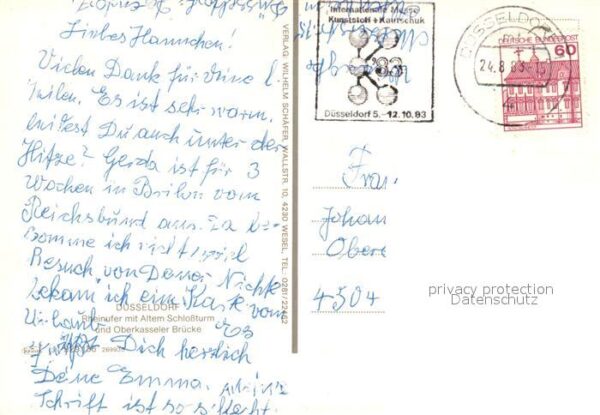 Liebes Hannchen!
Vielen Dank für Deine l.
Zeilen. Es ist sehr warm,
leidest Du auch unter der
Hitze? Gerda ist für 3
Wochen in Brilon vom
Reichsbund aus. Da be-
komme ich nicht viel
Besuch von Deiner Nichte
bekam ich eine Karte vom
Urlaub. Es
grüßt Dich herzlich
Deine Emma.
Schrift ist so schlecht.
DÜSSELDORF
Rheinufer mit Altem Schloßturm
und Oberkasseler Brücke
VERLAG WILHELM SCHÄFER, WALLSTR. 10, 4230 WESEL, TEL. 0281/22452
Internationale Messe
Kunststoff + Kautschuk
K'83
Düsseldorf 5.-12.10.83
DÜSSELDORF
24.8.83
DEUTSCHE BUNDESPOST
60
Frau
Johan
Obere
4504
privacy protection
Datenschutz